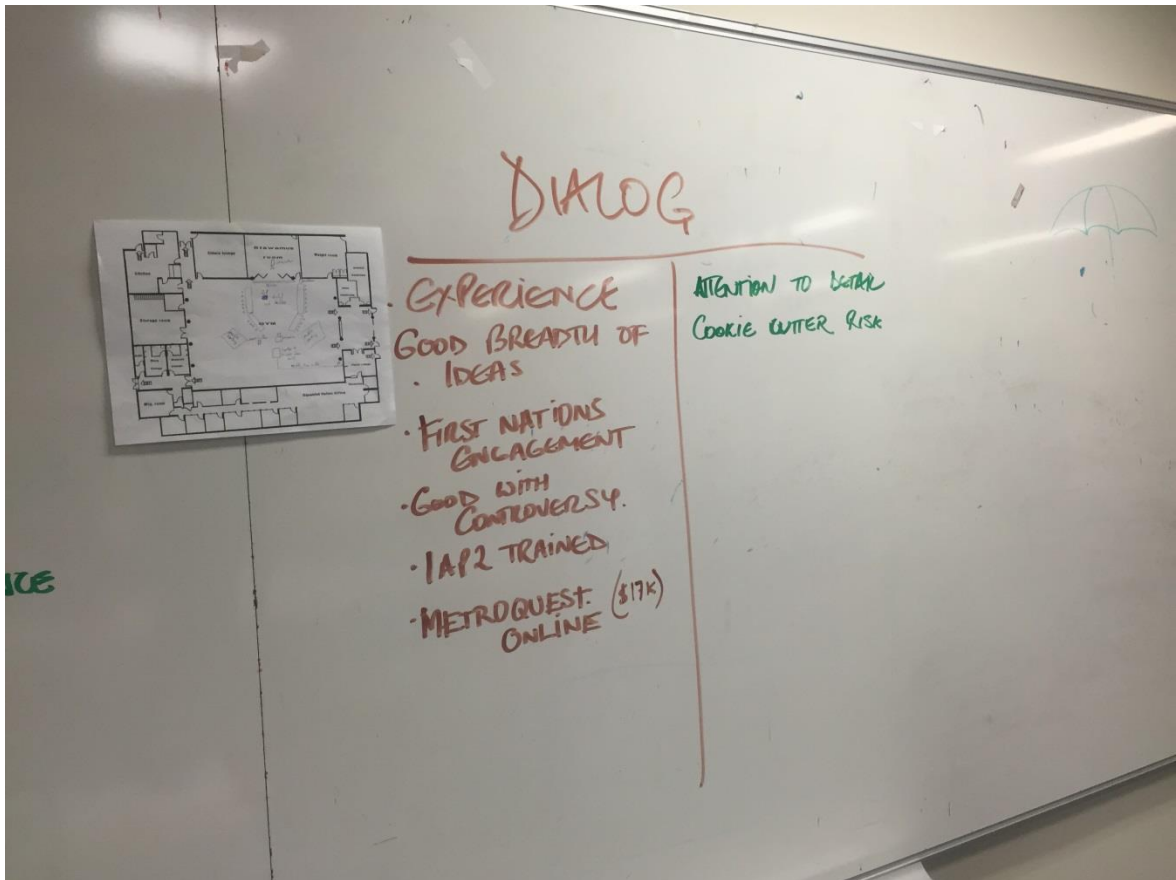 DIALOG
· EXPERIENCE
GOOD BREADTH OF
· IDEAS
· FIRST NATIONS
ENGAGEMENT
· GOOD WITH
CONTROVERSY.
· IAP2 TRAINED
· METROQUEST. ($17K)
ONLINE
ATTENTION TO DETAIL
COOKIE CUTTER RISK